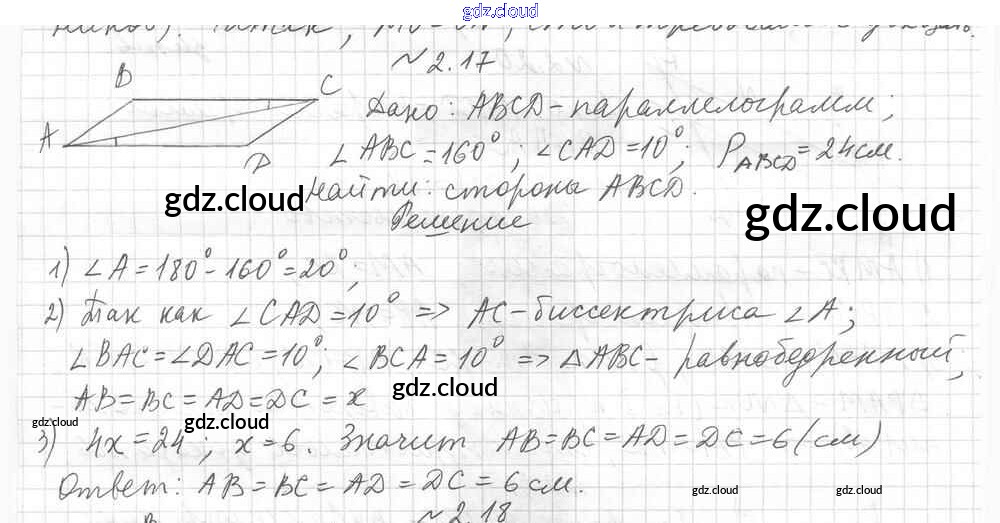 gdz.cloud
~ 2.17
B C
A D
Дано: ABCD - параллелограмм;
∠ABC = 160°; ∠CAD = 10°; P ABCD = 24 см.
Найти: стороны ABCD.
gdz.cloud
gdz.cloud
Решение
1) ∠A = 180° - 160° = 20°;
2) Так как ∠CAD = 10° => AC - биссектриса ∠A;
∠BAC = ∠DAC = 10°; ∠BCA = 10° => △ABC - равнобедренный,
gdz.cloud
AB = BC = AD = DC = x
gdz.cloud
gdz.cloud
3) 4x = 24; x = 6. Значит AB = BC = AD = DC = 6 (см)
Ответ: AB = BC = AD = DC = 6 см.
gdz.cloud
gdz.cloud
B ~ 2.18